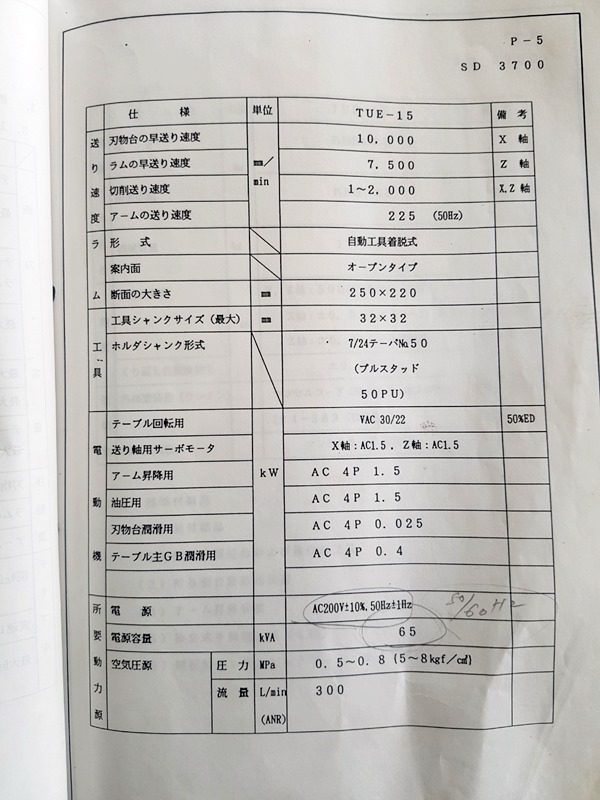 P-5
SD 3700
仕 様 単位 TUE-15 備 考
送り速度 刃物台の早送り速度 mm/min 10,000 X 軸
ラムの早送り速度 7,500 Z 軸
切削送り速度 1~2,000 X,Z 軸
アームの送り速度 225 (50Hz)
ラム 形 式 自動工具着脱式
案内面 オープンタイプ
断面の大きさ mm 250×220
工具 工具シャンクサイズ(最大) mm 32×32
ホルダシャンク形式 7/24テーパNo.50
(プルスタッド
50PU)
電動機 テーブル回転用 kW VAC 30/22 50%ED
送り軸用サーボモータ X軸:AC1.5, Z軸:AC1.5
アーム昇降用 AC 4P 1.5
油圧用 AC 4P 1.5
刃物台潤滑用 AC 4P 0.025
テーブル主GB潤滑用 AC 4P 0.4
所要動力源 電 源 AC200V±10%,50Hz±1Hz 50/60Hz
電源容量 kVA 65
空気圧源 圧 力 MPa 0.5~0.8 {5~8kgf/cm²}
流 量 L/min 300
(ANR)